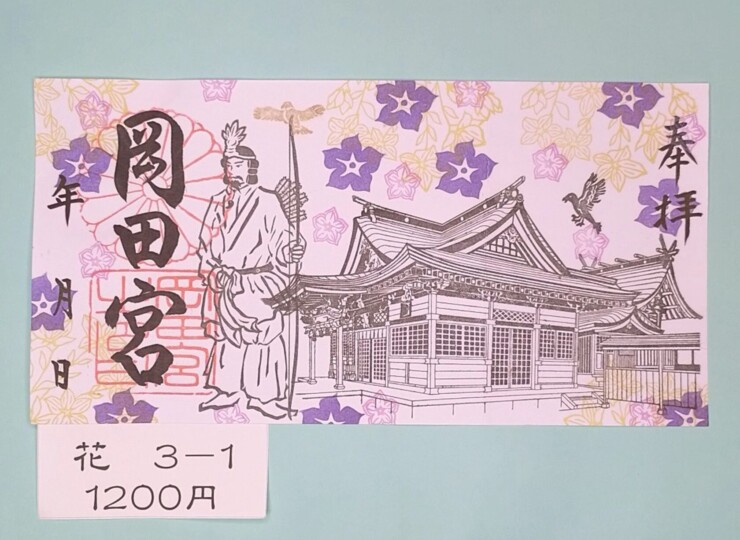 奉拝
岡田宮
年 月 日
花 3－1
1200円